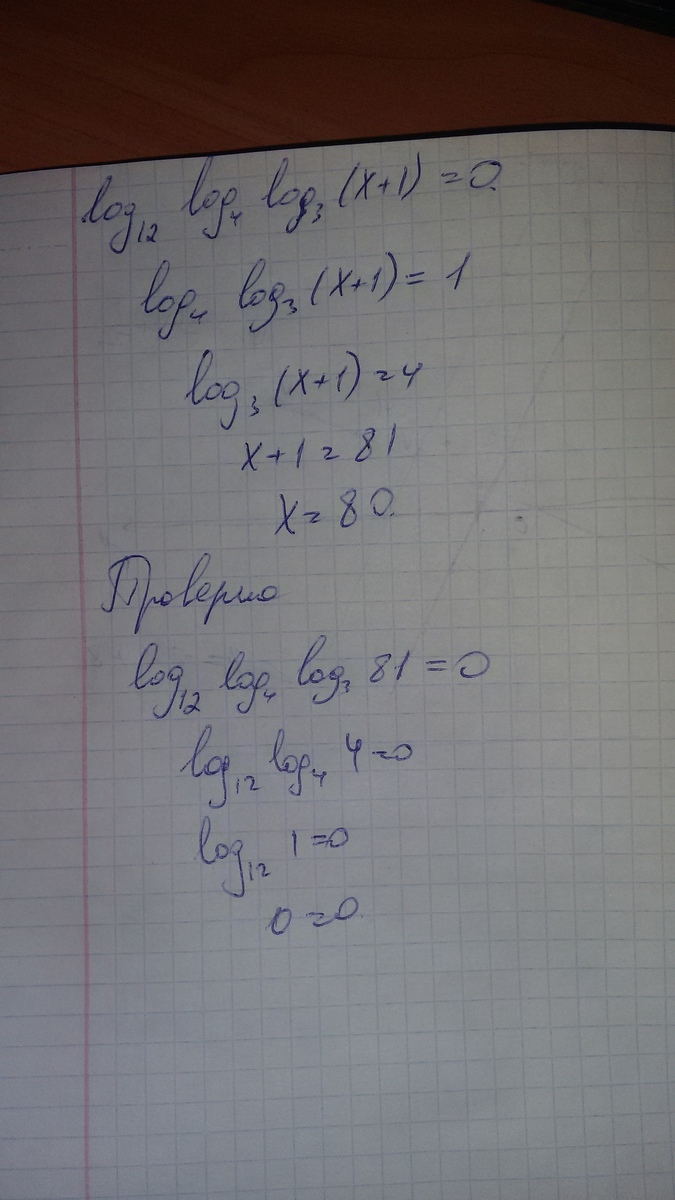 log₁₂ log₄ log₃ (x+1) = 0.
log₄ log₃ (x+1) = 1
log₃ (x+1) = 4
x+1 = 81
x = 80.
Проверка
log₁₂ log₄ log₃ 81 = 0
log₁₂ log₄ 4=0
log₁₂ 1=0
0=0.